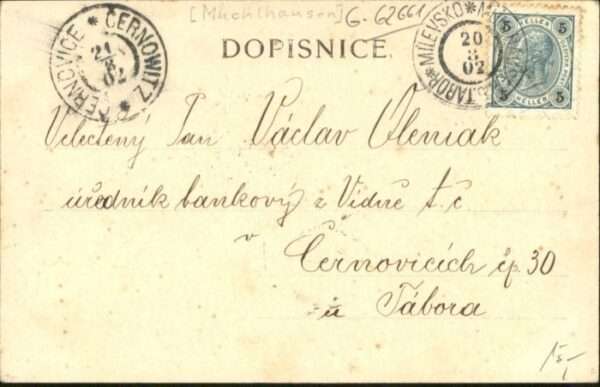 [Mühlhausen] G. 62661
ČERNOVICE * ČERNOWITZ *
21
8
02
DOPISNICE.
MILEVSKO
TÁBOR
20
8
02
5 5
HELLER HELLER
5 5
Velectěný Pan Václav Oleniak
úředník bankový z Vídně t. č
v
Černovicích čp. 30
u Tábora
15,-